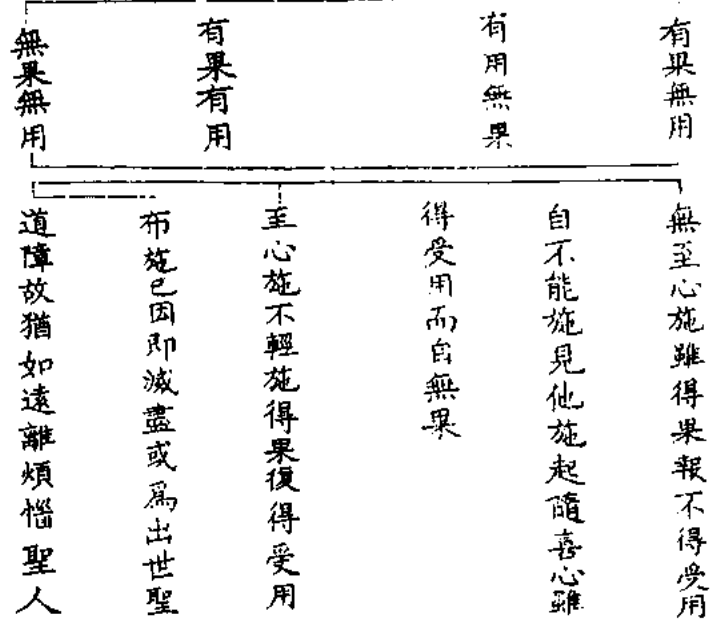 有果無用
有用無果
有果有用
無果無用
無至心施雖得果報不得受用
自不能施見他施起隨喜心雖
得受用而自無果
至心施不輕施得果復得受用
布施已因即滅盡或爲出世聖
道障故猶如遠離煩惱聖人